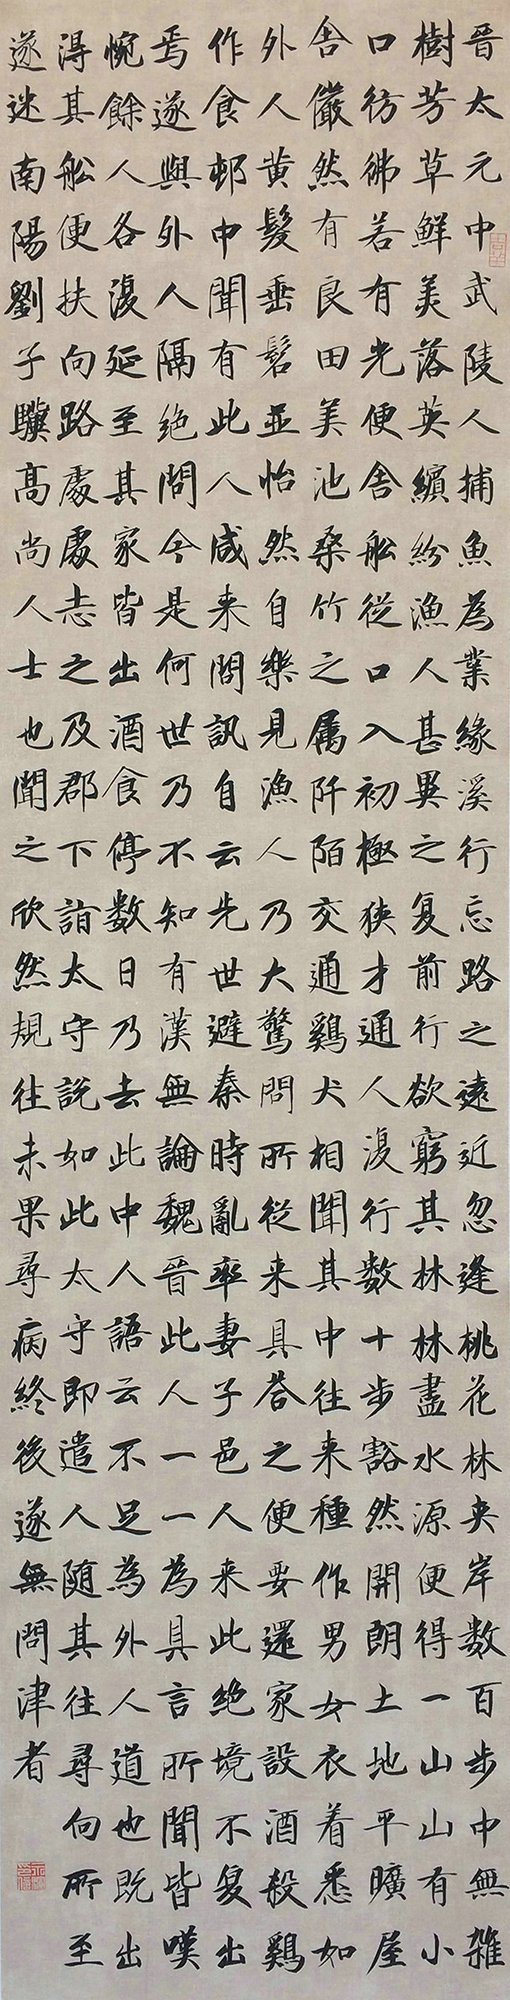 晉太元中武陵人捕魚為業緣溪行忘路之遠近忽逢桃花林夾岸数百步中無雜
樹芳草鮮美落英繽紛漁人甚異之复前行欲窮其林林盡水源便得一山山有小
口彷彿若有光便舍舩從口入初極狹才通人復行数十步豁然開朗土地平曠屋
舍儼然有良田美池桑竹之属阡陌交通鷄犬相聞其中往来種作男女衣着悉如
外人黄髮垂髫並怡然自樂見漁人乃大驚問所從来具荅之便要還家設酒殺鷄
作食邨中聞有此人咸来問訊自云先世避秦時亂率妻子邑人来此絶境不复出
焉遂與外人隔絶問今是何世乃不知有漢無論魏晉此人一一為具言所聞皆嘆
惋餘人各復延至其家皆出酒食停数日乃去此中人語云不足為外人道也既出
得其舩便扶向路處處志之及郡下詣太守説如此太守即遣人随其往尋向所至
遂迷南陽劉子驥高尚人士也聞之欣然規往未果尋病終後遂無問津者